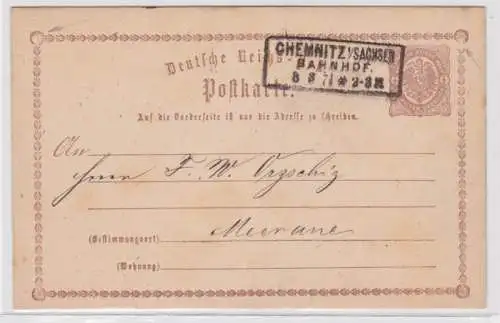 Deutsche Reichs-
CHEMNITZ I/SACHSEN
BAHNHOF.
Postkarte.
Auf die Vorderseite ist nur die Adresse zu schreiben.
An
Herrn F. W.
Meerane
(Bestimmungsort)
(Wohnung)